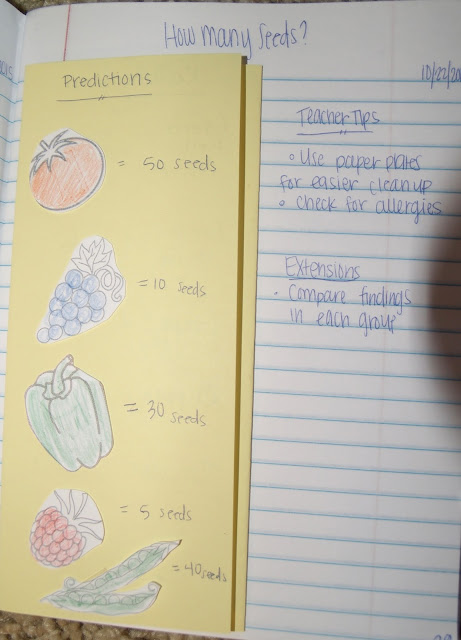 How many Seeds?
10/22/20
Predictions
= 50 seeds
= 10 seeds
= 30 seeds
= 5 seeds
= 40 seeds
Teacher Tips
• Use paper plates
for easier cleanup
• check for allergies
Extensions
• Compare findings
in each group